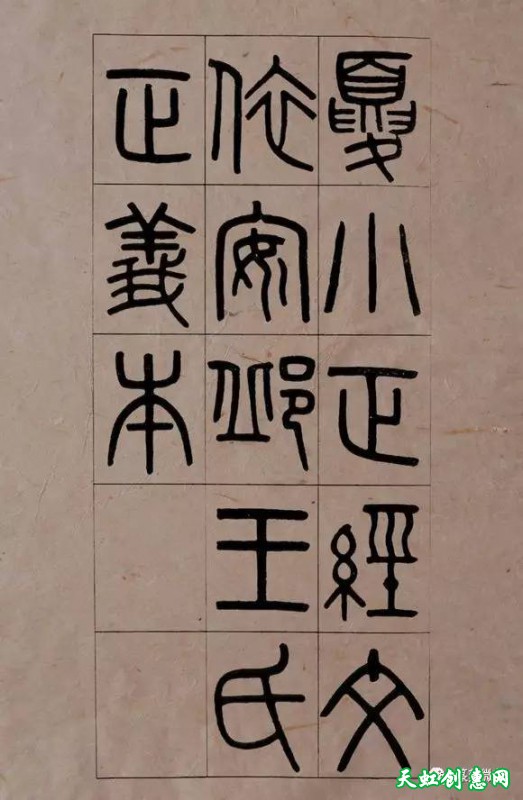 夏小正經文
依安邱王氏
正義本
天虹创意网